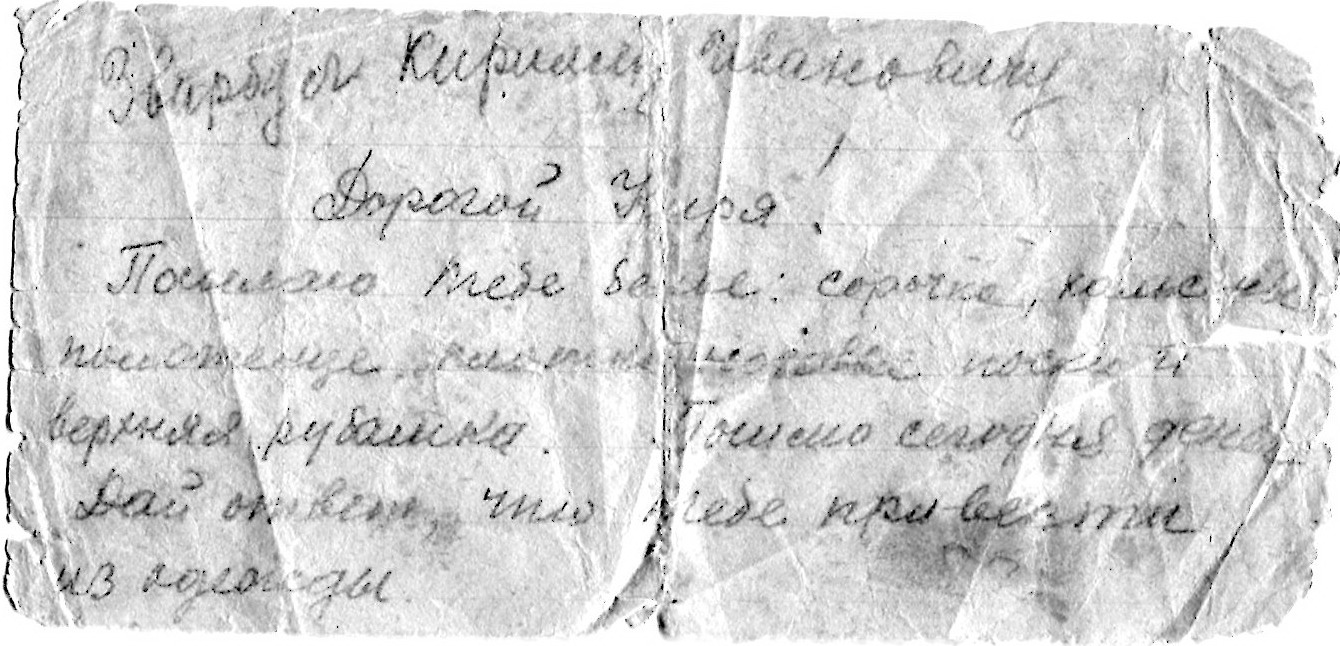 Кириллу Ивановичу
Дорогой Киря!
Посылаю тебе белье: сорочка, кальсоны
полотенце, носки и
верхняя рубашка. Пошлю сегодня деньги
Дай ответ, что тебе привезти
из одежды